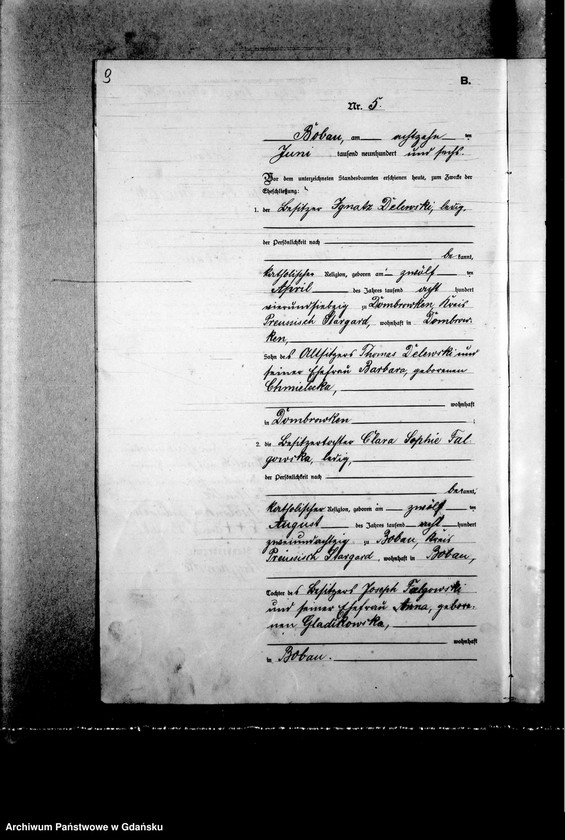 9
B.
Nr. 5.
Bobau, am achtzehn ten
Juni tausend neunhundert und sechs.
Vor dem unterzeichneten Standesbeamten erschienen heute, zum Zwecke der
Eheschließung:
1. der Besitzer Ignatz Delewski, ledig,
der Persönlichkeit nach
be kannt,
katholischer Religion, geboren am zwölf ten
April des Jahres tausend acht hundert
vierundsiebzig zu Dombrowken, Kreis
Preussisch Stargard, wohnhaft in Dombrow-
ken,
Sohn des Altsitzers Thomas Delewski und
seiner Ehefrau Barbara, geborenen
Chmielecka,
wohnhaft
in Dombrowken ;
2. die Besitzertochter Clara Sophie Fal-
gowska, ledig,
der Persönlichkeit nach
be kannt,
katholischer Religion, geboren am zwölf ten
August des Jahres tausend acht hundert
zweiundachtzig zu Bobau, Kreis
Preussisch Stargard, wohnhaft in Bobau,
Tochter des Besitzers Joseph Falgowski
und seiner Ehefrau Anna, gebore-
nen Gladikowska,
wohnhaft
in Bobau.
Archiwum Państwowe w Gdańsku